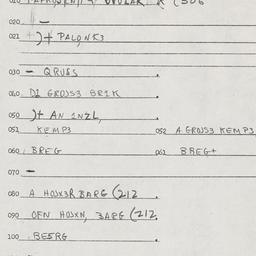 020 —
021 )+ PALQNK3
030 — QRUSS
040 DI GROJS3 BR1K
050 )+ AN 1NZL,
051 KEMP3 052 A GROJS3 KEMP3
060 BREG 061 BREG+
070 —
080 A HOJX3R BARG (212
090 OFN HOJXN, BARG (212.
100 BE5RG